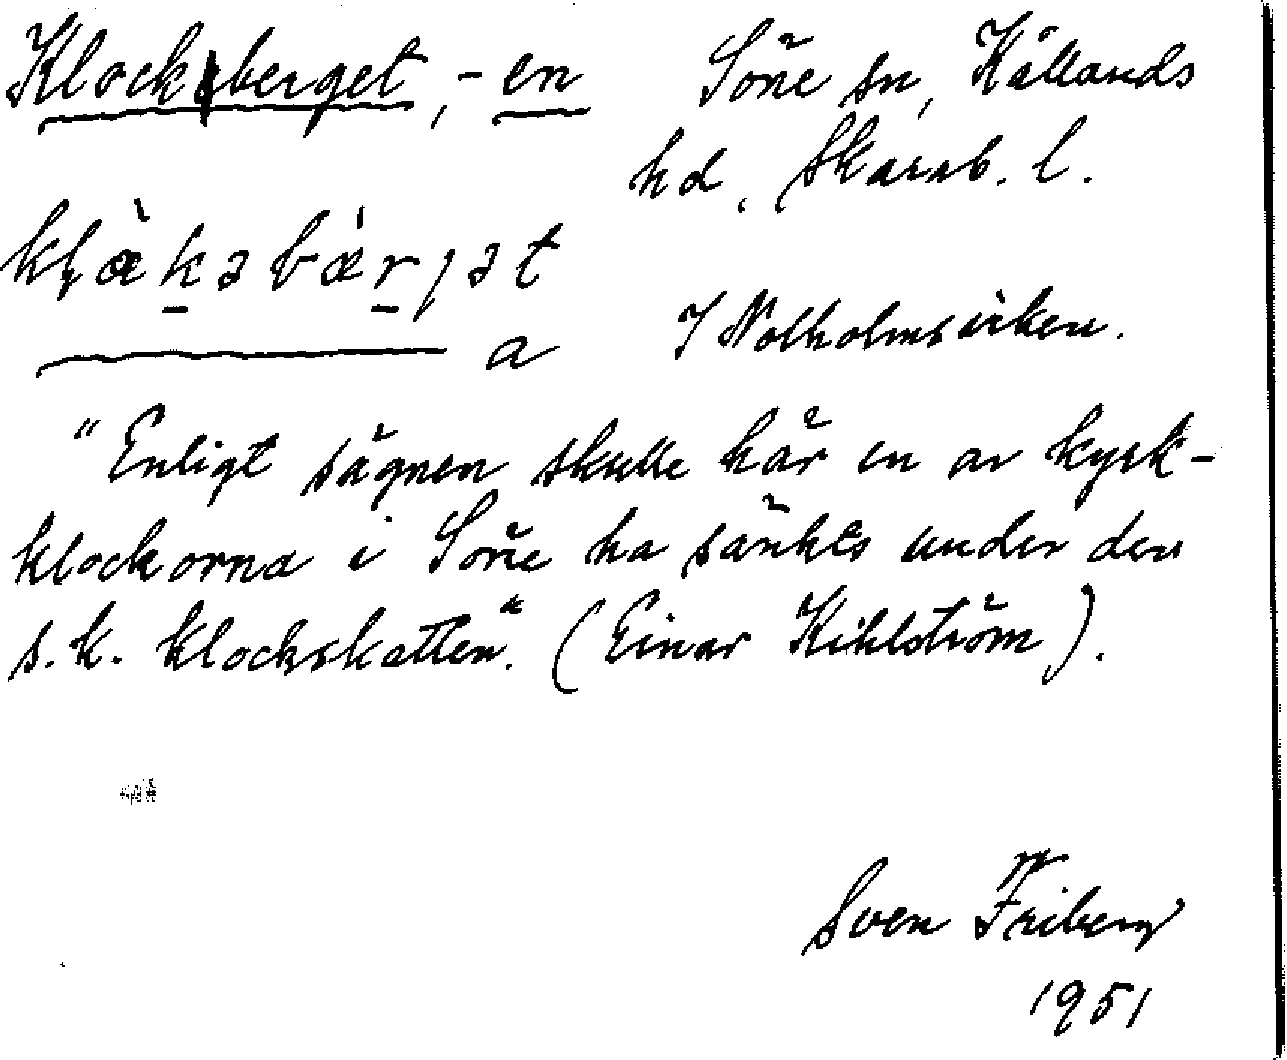 Klockberget, -en Söne sn, Kållands
hd, Skarab. l.
kḷæ̀kəbæ̀rjət
a I Nolholmsviken.
"Enligt sägnen skulle här en av kyrk-
klockorna i Söne ha sänkts under den
s.k. klockskatten". (Einar Kihlström).
Sven Friberg
1951